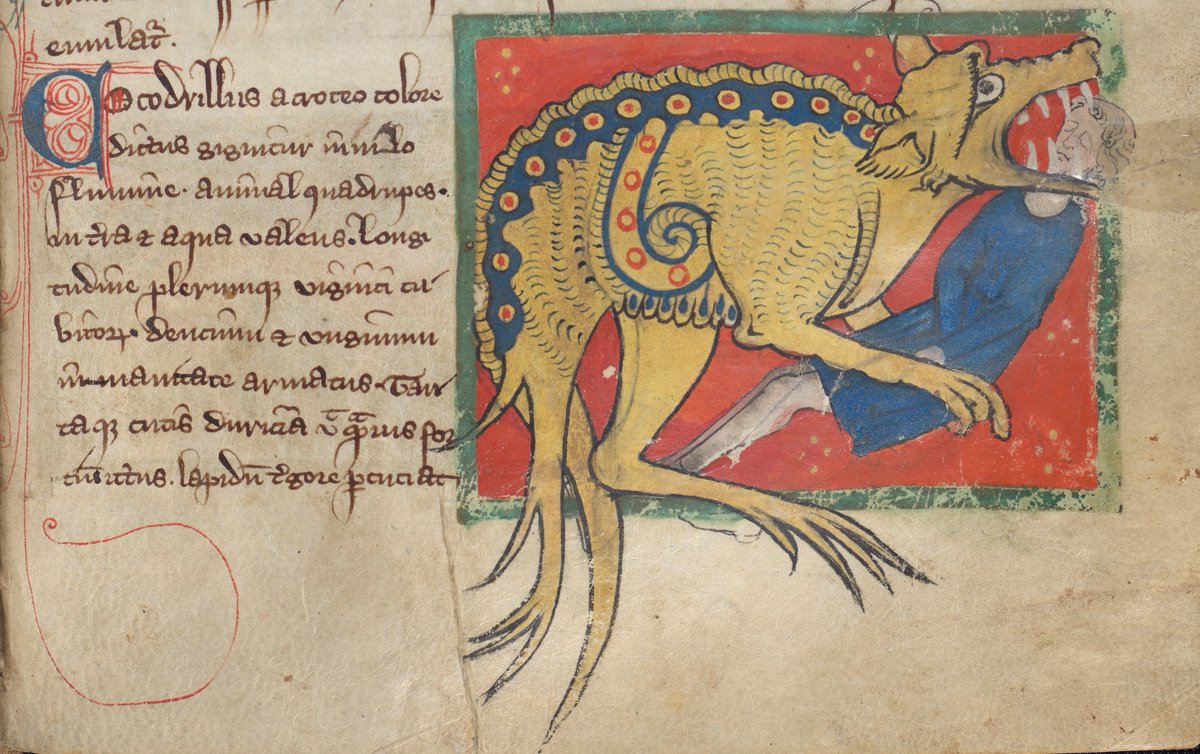 emulat̃.
Cocodrillus a croceo colore
dictus gignitur in nilo
flumine. animal quadrupes.
in t̃ra ⁊ aqua valens. longi
tudine plerumqꝫ viginti cu
bitoꝝ. dencium ⁊ unguium
inmanitate armatus. Tan
taqꝫ cutis duricia
ictus. lapidū t̃gore ꝑcuciat